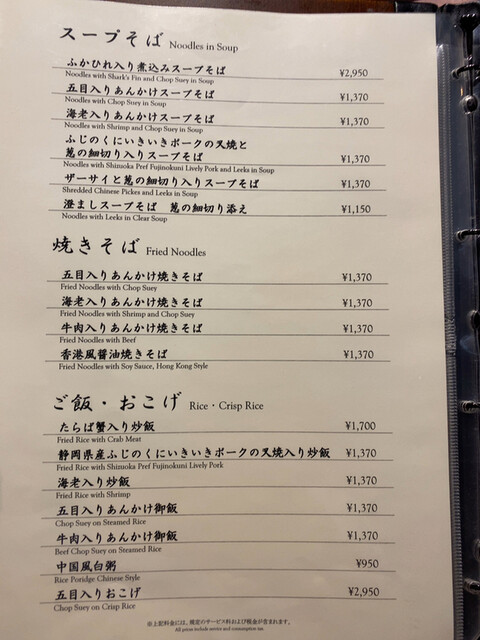 スープそば Noodles in Soup
ふかひれ入り煮込みスープそば ¥2,950
Noodles with Shark's Fin and Chop Suey in Soup
五目入りあんかけスープそば ¥1,370
Noodles with Chop Suey in Soup
海老入りあんかけスープそば ¥1,370
Noodles with Shrimp and Chop Suey in Soup
ふじのくにいきいきポークの叉焼と
葱の細切り入りスープそば ¥1,370
Noodles with Shizuoka Pref Fujinokuni Lively Pork and Leeks in Soup
ザーサイと葱の細切り入りスープそば ¥1,370
Shredded Chinese Pickes and Leeks in Soup
澄ましスープそば 葱の細切り添え ¥1,150
Noodles with Leeks in Clear Soup
焼きそば Fried Noodles
五目入りあんかけ焼きそば ¥1,370
Fried Noodles with Chop Suey
海老入りあんかけ焼きそば ¥1,370
Fried Noodles with Shrimp and Chop Suey
牛肉入りあんかけ焼きそば ¥1,370
Fried Noodles with Beef
香港風醤油焼きそば ¥1,370
Fried Noodles with Soy Sauce, Hong Kong Style
ご飯・おこげ Rice・Crisp Rice
たらば蟹入り炒飯 ¥1,700
Fried Rice with Crab Meat
静岡県産ふじのくにいきいきポークの叉焼入り炒飯 ¥1,370
Fried Rice with Shizuoka Pref Fujinokuni Lively Pork
海老入り炒飯 ¥1,370
Fried Rice with Shrimp
五目入りあんかけ御飯 ¥1,370
Chop Suey on Steamed Rice
牛肉入りあんかけ御飯 ¥1,370
Beef Chop Suey on Steamed Rice
中国風白粥 ¥950
Rice Poridge Chinese Style
五目入りおこげ ¥2,950
Chop Suey on Crisp Rice
※上記料金には、規定のサービス料および税金が含まれます。
All prices include service and consumption tax.